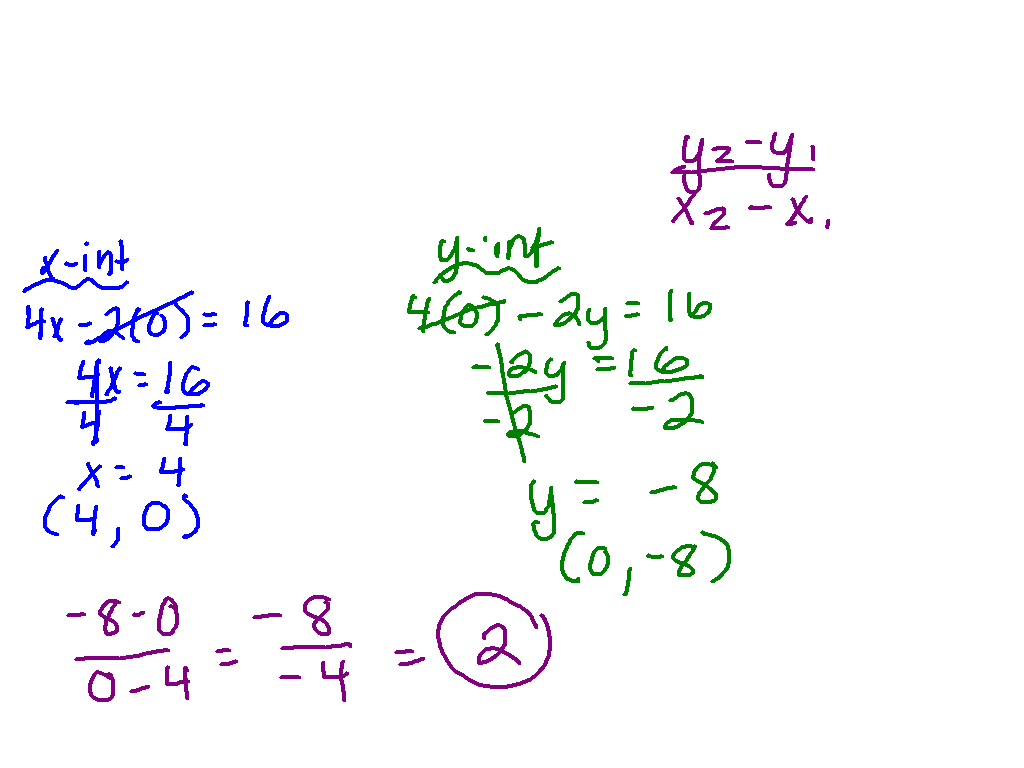 y₂ - y₁
x₂ - x₁
x-int
4x - 2(0) = 16
4x = 16
4 4
x = 4
(4, 0)
y-int
4(0) - 2y = 16
-2y = 16
-2 -2
y = -8
(0, -8)
-8 - 0 = -8 = 2
0 - 4 -4